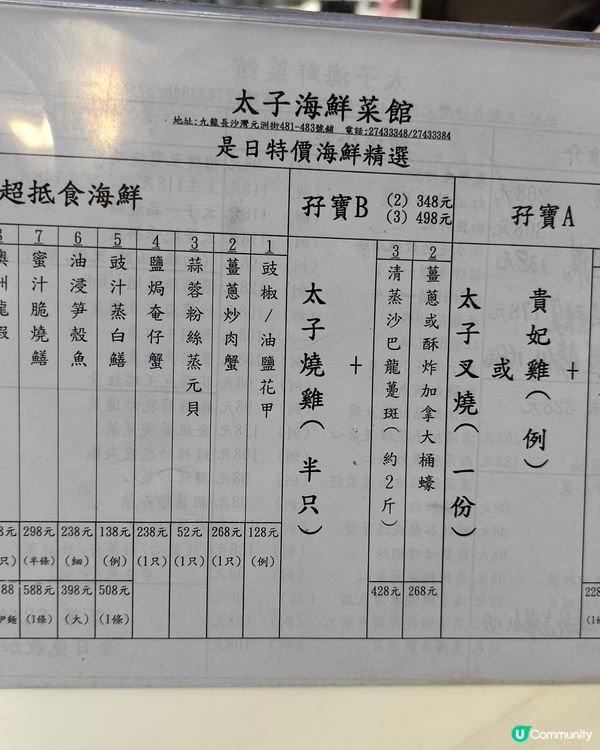 太子海鮮菜館
地址:九龍長沙灣元洲街481-483號鋪 電話:27433348/27433384
是日特價海鮮精選
孖寶A
貴妃雞(例)
或
太子叉燒(一份)
+
228
2 薑蔥或酥炸加拿大桶蠔 268元
3 清蒸沙巴龍躉斑(約2斤) 428元
孖寶B
(2) 348元
(3) 498元
+
太子燒雞(半只)
超抵食海鮮
1 豉椒/油鹽花甲 128元(例)
2 薑蔥炒肉蟹 268元(1只)
3 蒜蓉粉絲蒸元貝 52元(1只)
4 鹽焗奄仔蟹 238元(1只)
5 豉汁蒸白鱔 138元(例) 508元(1條)
6 油浸笋殼魚 238元(細) 398元(大)
7 蜜汁脆燒鱔 298元(半條) 588元(1條)
U Community